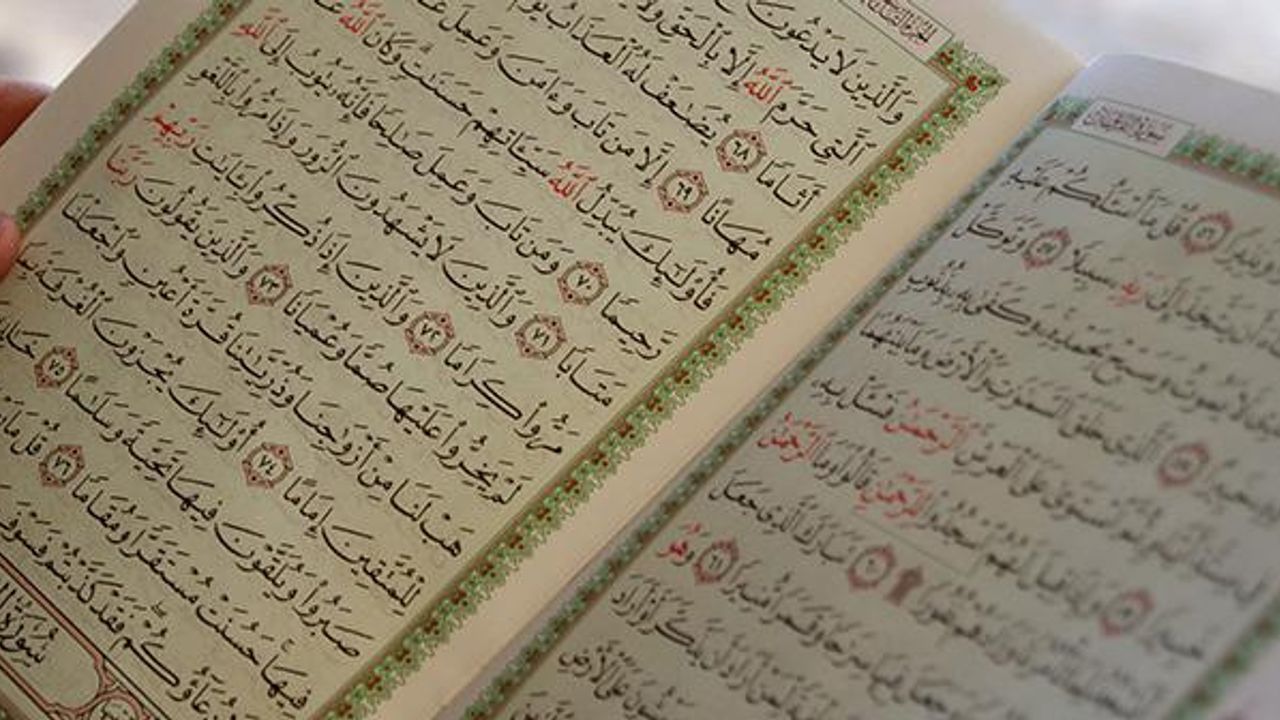 سُورَةُ الْفُرْقَانِ
وَنَذِيرًا ٥٦ قُلْ مَآ أَسْـَٔلُكُمْ عَلَيْهِ
أَن يَتَّخِذَ إِلَىٰ رَبِّهِۦ سَبِيلًا ٥٧ وَتَوَكَّلْ
ٱلَّذِى لَا يَمُوتُ وَسَبِّحْ بِحَمْدِهِۦ وَكَفَىٰ بِهِۦ بِذُنُوبِ
ٱلَّذِى خَلَقَ ٱلسَّمَٰوَٰتِ وَٱلْأَرْضَ وَمَا بَيْنَهُمَا
ثُمَّ ٱسْتَوَىٰ عَلَى ٱلْعَرْشِ ٱلرَّحْمَٰنُ فَسْـَٔلْ بِهِۦ
خَبِيرًا ٥٩ وَإِذَا قِيلَ لَهُمُ ٱسْجُدُوا۟ لِلرَّحْمَٰنِ قَالُوا۟ وَمَا ٱلرَّحْمَٰنُ
وَزَادَهُمْ نُفُورًا ٦٠ تَبَارَكَ ٱلَّذِى جَعَلَ
وَجَعَلَ فِيهَا سِرَٰجًا وَقَمَرًا مُّنِيرًا ٦١ وَهُوَ
لِّمَنْ أَرَادَ أَن يَذَّكَّرَ أَوْ أَرَادَ
يَمْشُونَ عَلَى ٱلْأَرْضِ
وَٱلَّذِينَ لَا يَدْعُونَ
ٱلَّتِى حَرَّمَ ٱللَّهُ إِلَّا بِٱلْحَقِّ وَلَا
أَثَامًا ٦٨ يُضَٰعَفْ لَهُ ٱلْعَذَابُ يَوْمَ
مُهَانًا ٦٩ إِلَّا مَن تَابَ وَءَامَنَ وَعَمِلَ عَمَلًا
فَأُو۟لَٰٓئِكَ يُبَدِّلُ ٱللَّهُ سَيِّـَٔاتِهِمْ حَسَنَٰتٍ وَكَانَ ٱللَّهُ
رَّحِيمًا ٧٠ وَمَن تَابَ وَعَمِلَ صَٰلِحًا فَإِنَّهُۥ يَتُوبُ إِلَى ٱللَّهِ
مَتَابًا ٧١ وَٱلَّذِينَ لَا يَشْهَدُونَ ٱلزُّورَ وَإِذَا مَرُّوا۟ بِٱللَّغْوِ
مَرُّوا۟ كِرَامًا ٧٢ وَٱلَّذِينَ إِذَا ذُكِّرُوا۟ بِـَٔايَٰتِ رَبِّهِمْ
لَمْ يَخِرُّوا۟ عَلَيْهَا صُمًّا وَعُمْيَانًا ٧٣ وَٱلَّذِينَ يَقُولُونَ رَبَّنَا
هَبْ لَنَا مِنْ أَزْوَٰجِنَا وَذُرِّيَّٰتِنَا قُرَّةَ أَعْيُنٍ وَٱجْعَلْنَا
لِلْمُتَّقِينَ إِمَامًا ٧٤ أُو۟لَٰٓئِكَ يُجْزَوْنَ ٱلْغُرْفَةَ بِمَا
صَبَرُوا۟ وَيُلَقَّوْنَ فِيهَا تَحِيَّةً وَسَلَٰمًا ٧٥ خَٰلِدِينَ
فِيهَا حَسُنَتْ مُسْتَقَرًّا وَمُقَامًا ٧٦ قُلْ مَا
دُعَآؤُكُمْ فَقَدْ كَذَّبْتُمْ فَسَوْفَ
سُورَةُ